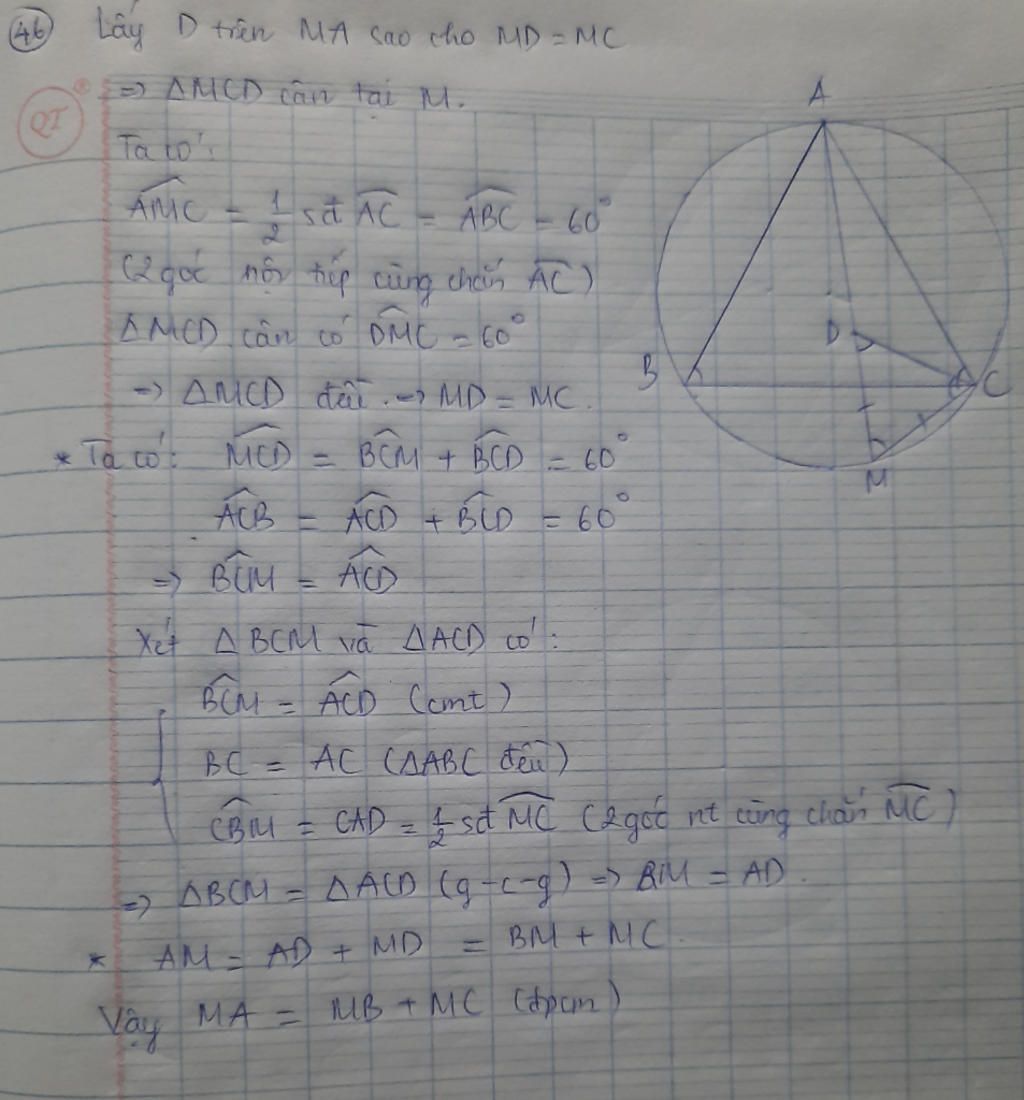 46 Lấy D trên MA sao cho MD = MC
QT
=> ΔMCD cân tại M.
Ta có:
AMC = 1/2 sđ AC = ABC = 60°
(2 góc nội tiếp cùng chắn AC)
ΔMCD cân có DMC = 60°
=> ΔMCD đều. => MD = MC.
* Ta có: MCD = BCM + BCD = 60°
ACB = ACD + BCD = 60°
=> BCM = ACD
Xét ΔBCM và ΔACD có:
BCM = ACD (cmt)
BC = AC (ΔABC đều)
CBM = CAD = 1/2 sđ MC (2 góc nt cùng chắn MC)
=> ΔBCM = ΔACD (g-c-g) => BM = AD.
* AM = AD + MD = BM + MC.
Vậy MA = MB + MC (đpcm)
A
D
B
C
M